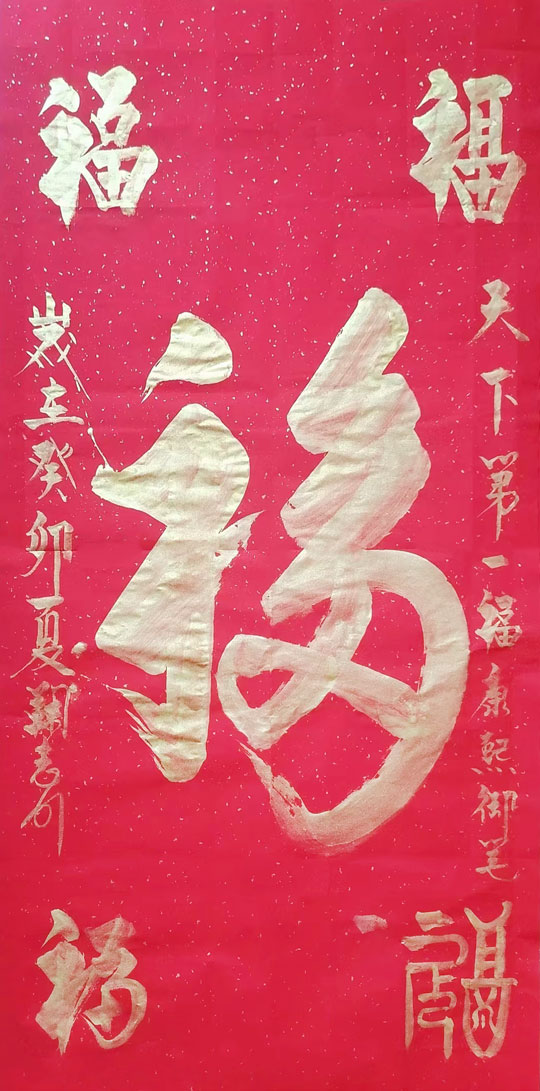 福
福
天下第一福康熙御笔
福
岁在癸卯夏
福
福